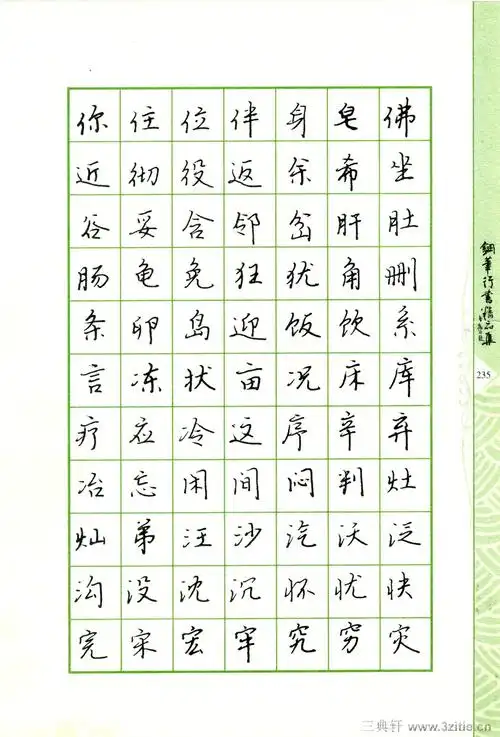 你 住 位 伴 身 皂 佛
近 彻 役 返 余 希 坐
谷 妥 含 邻 岔 肝 肚
肠 龟 免 狂 犹 角 删
条 卵 岛 迎 饭 饮 系
言 冻 状 亩 况 床 库
疗 应 冷 这 序 辛 弃
冶 忘 闲 间 闷 判 灶
灿 弟 汪 沙 汽 沃 泛
沟 没 沈 沉 怀 忧 快
完 宋 宏 牢 究 穷 灾
鋼筆行書精品集
235
三典轩 www.3zitie.cn